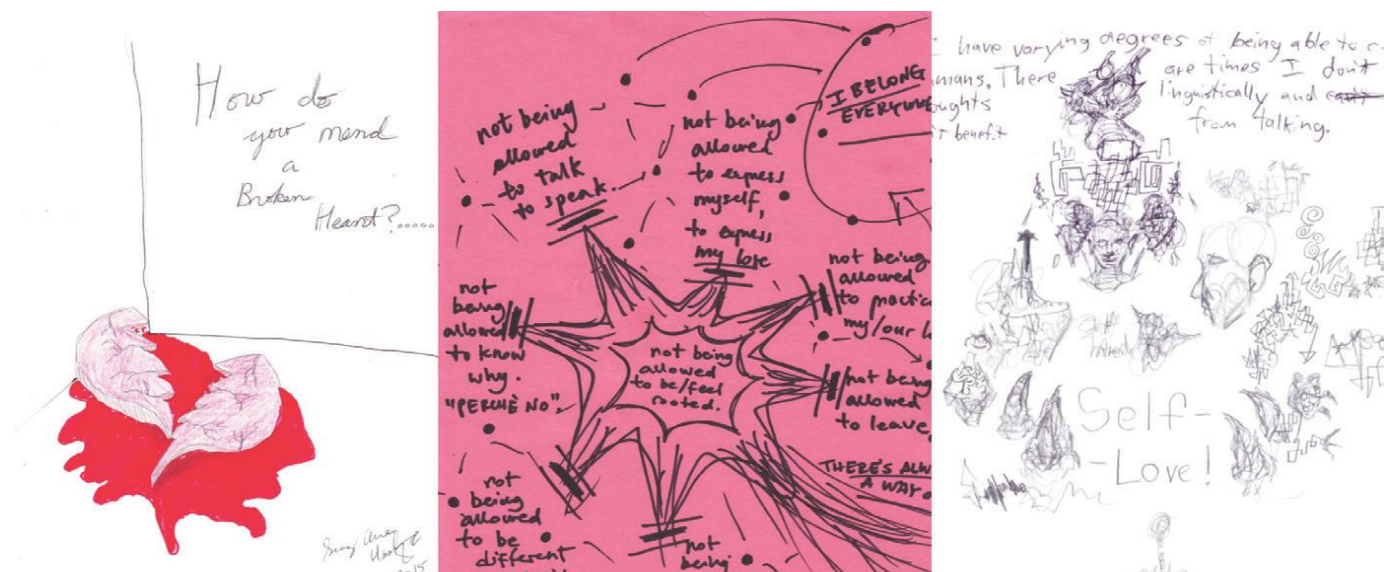 How do
you mend
a
Broken
Heart?.....
2015
not being
allowed
to talk
to speak.
not being
allowed
to express
myself,
to express
my love
I BELONG
EVERYWHE
not
being
allowed
to know
why.
"PERCHÈ NO".
not being
allowed
to be/feel
rooted.
not being
allowed
to practic
my/our l
not being
allowed
to leave.
THERE'S ALW
A WAY O
not
being
allowed
to be
different
not
being
I have varying degrees of being able to c
mans. There are times I don't
oughts linguistically and can't
't benefit from talking.
Self-
-Love!